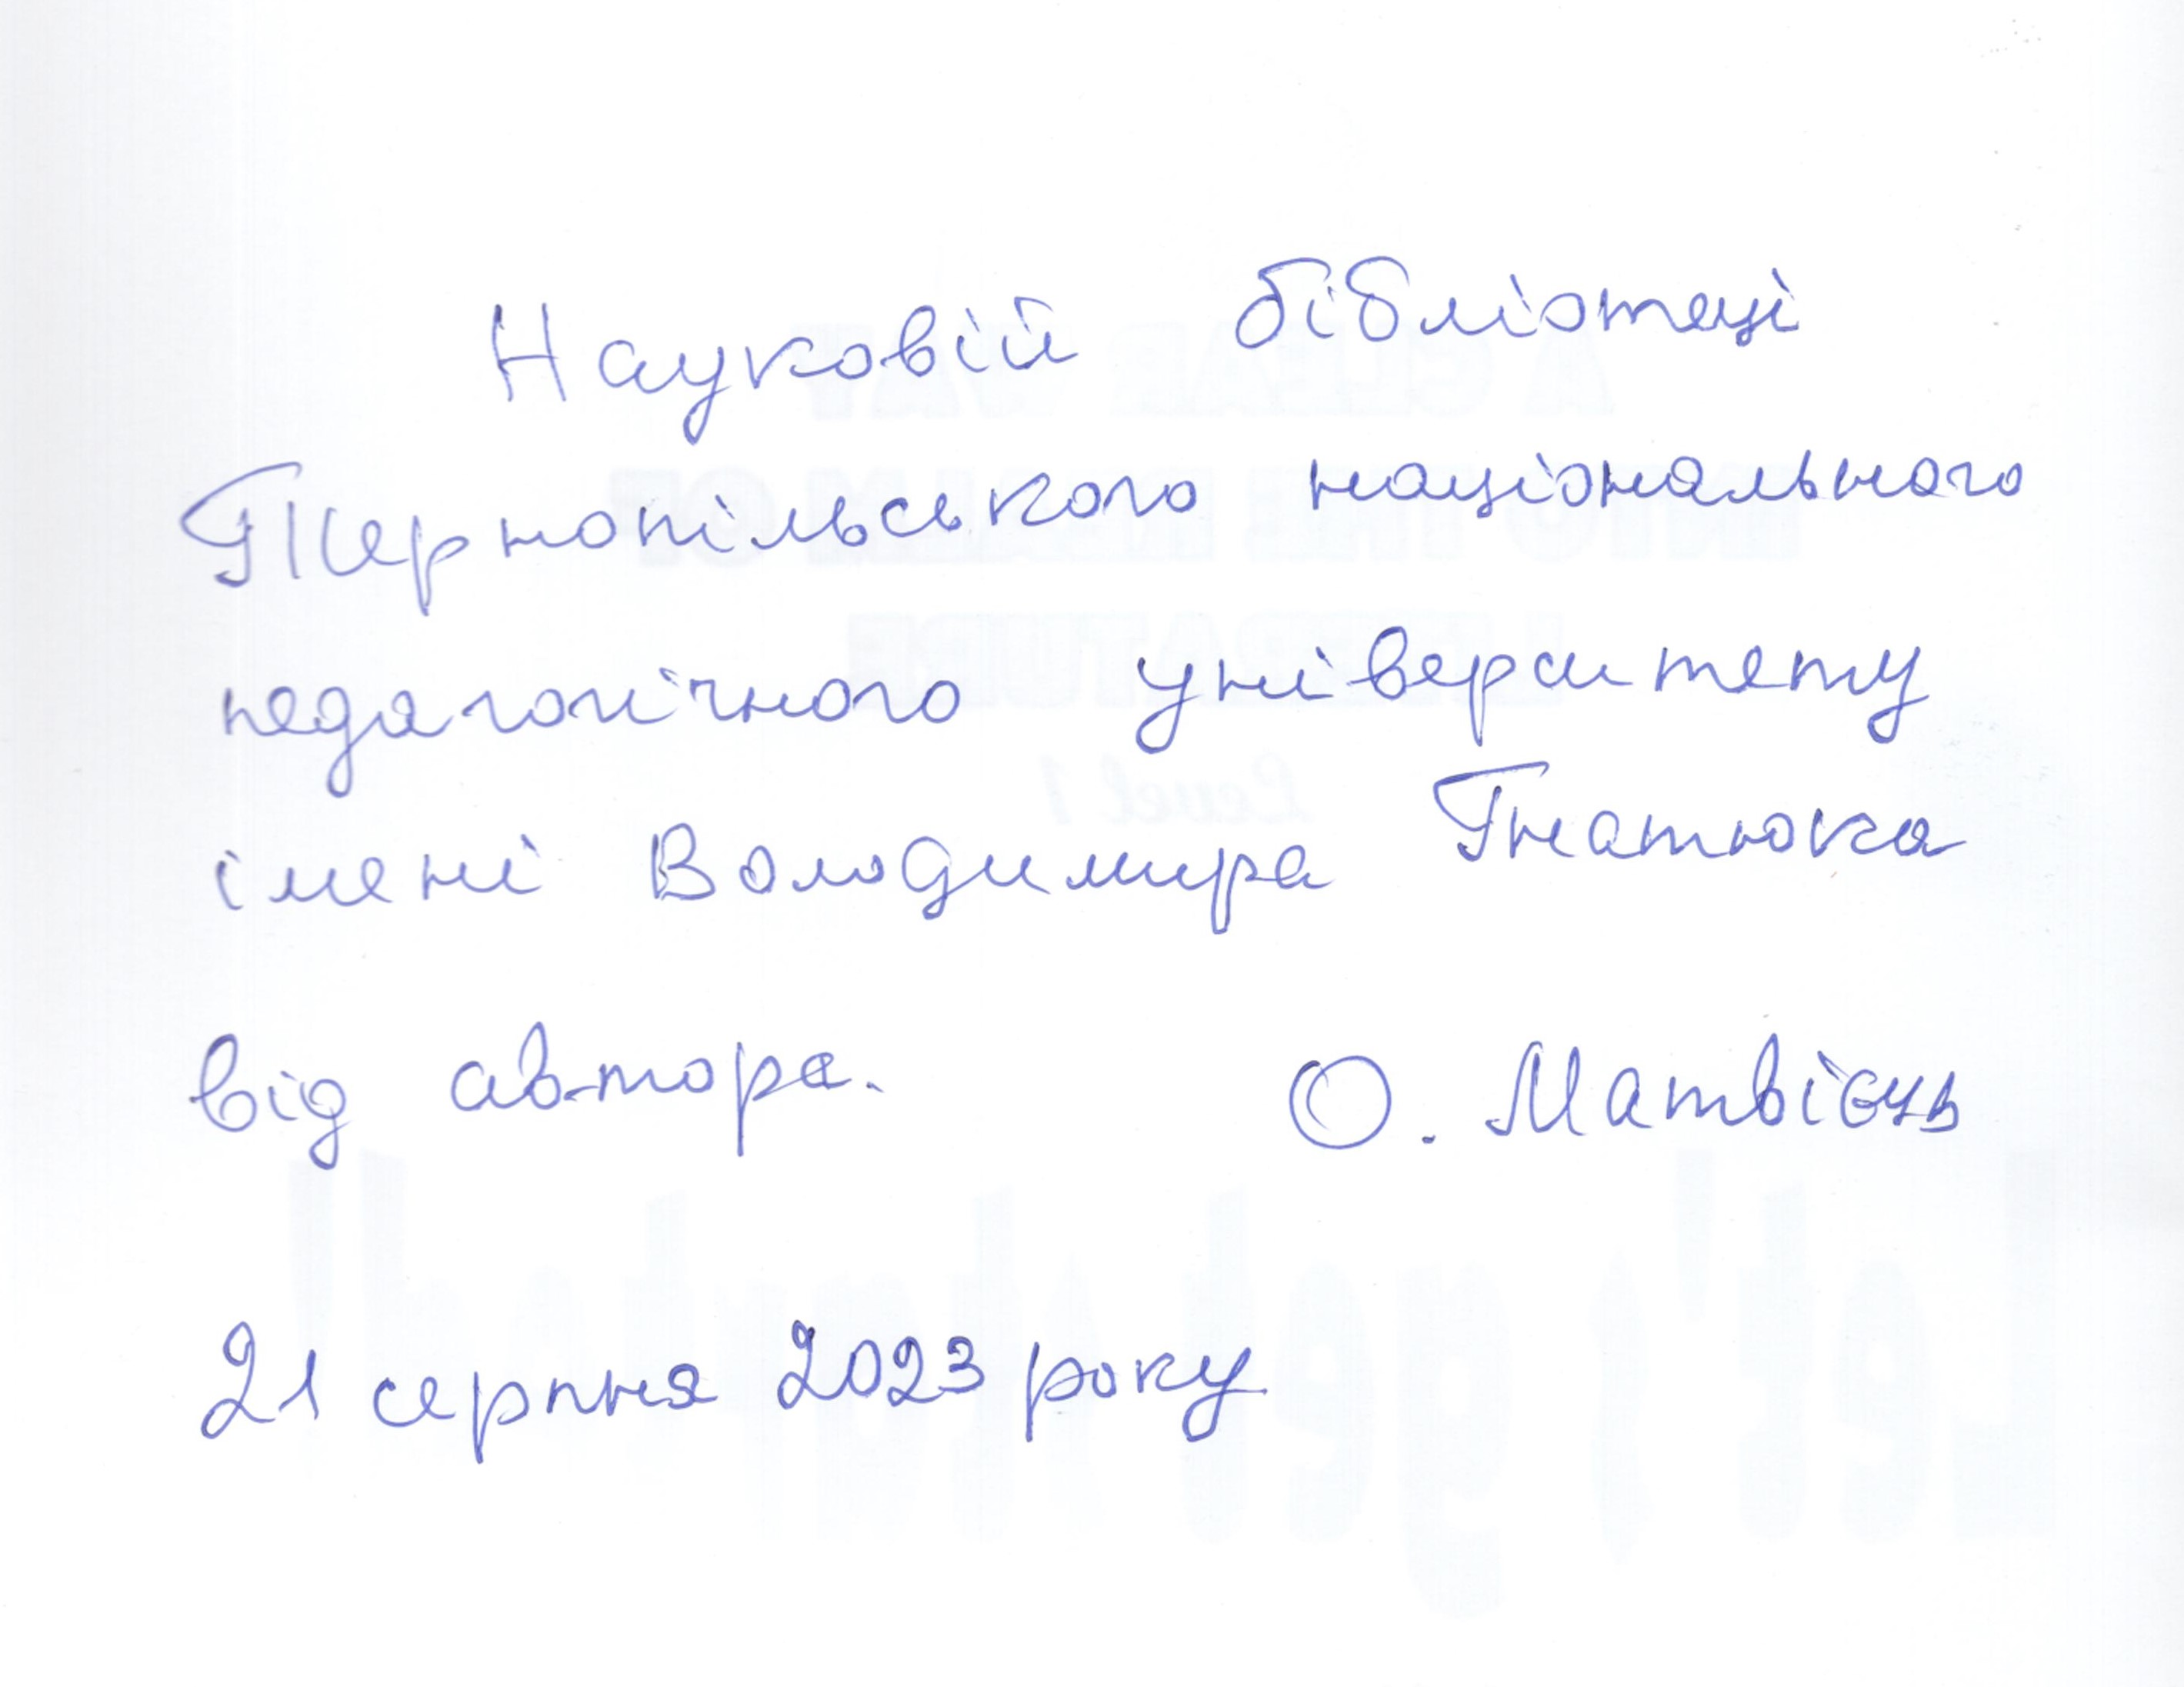 Науковій бібліотеці
Тернопільського національного
педагогічного університету
імені Володимира Гнатюка
від автора. О. Матвієць
21 серпня 2023 року